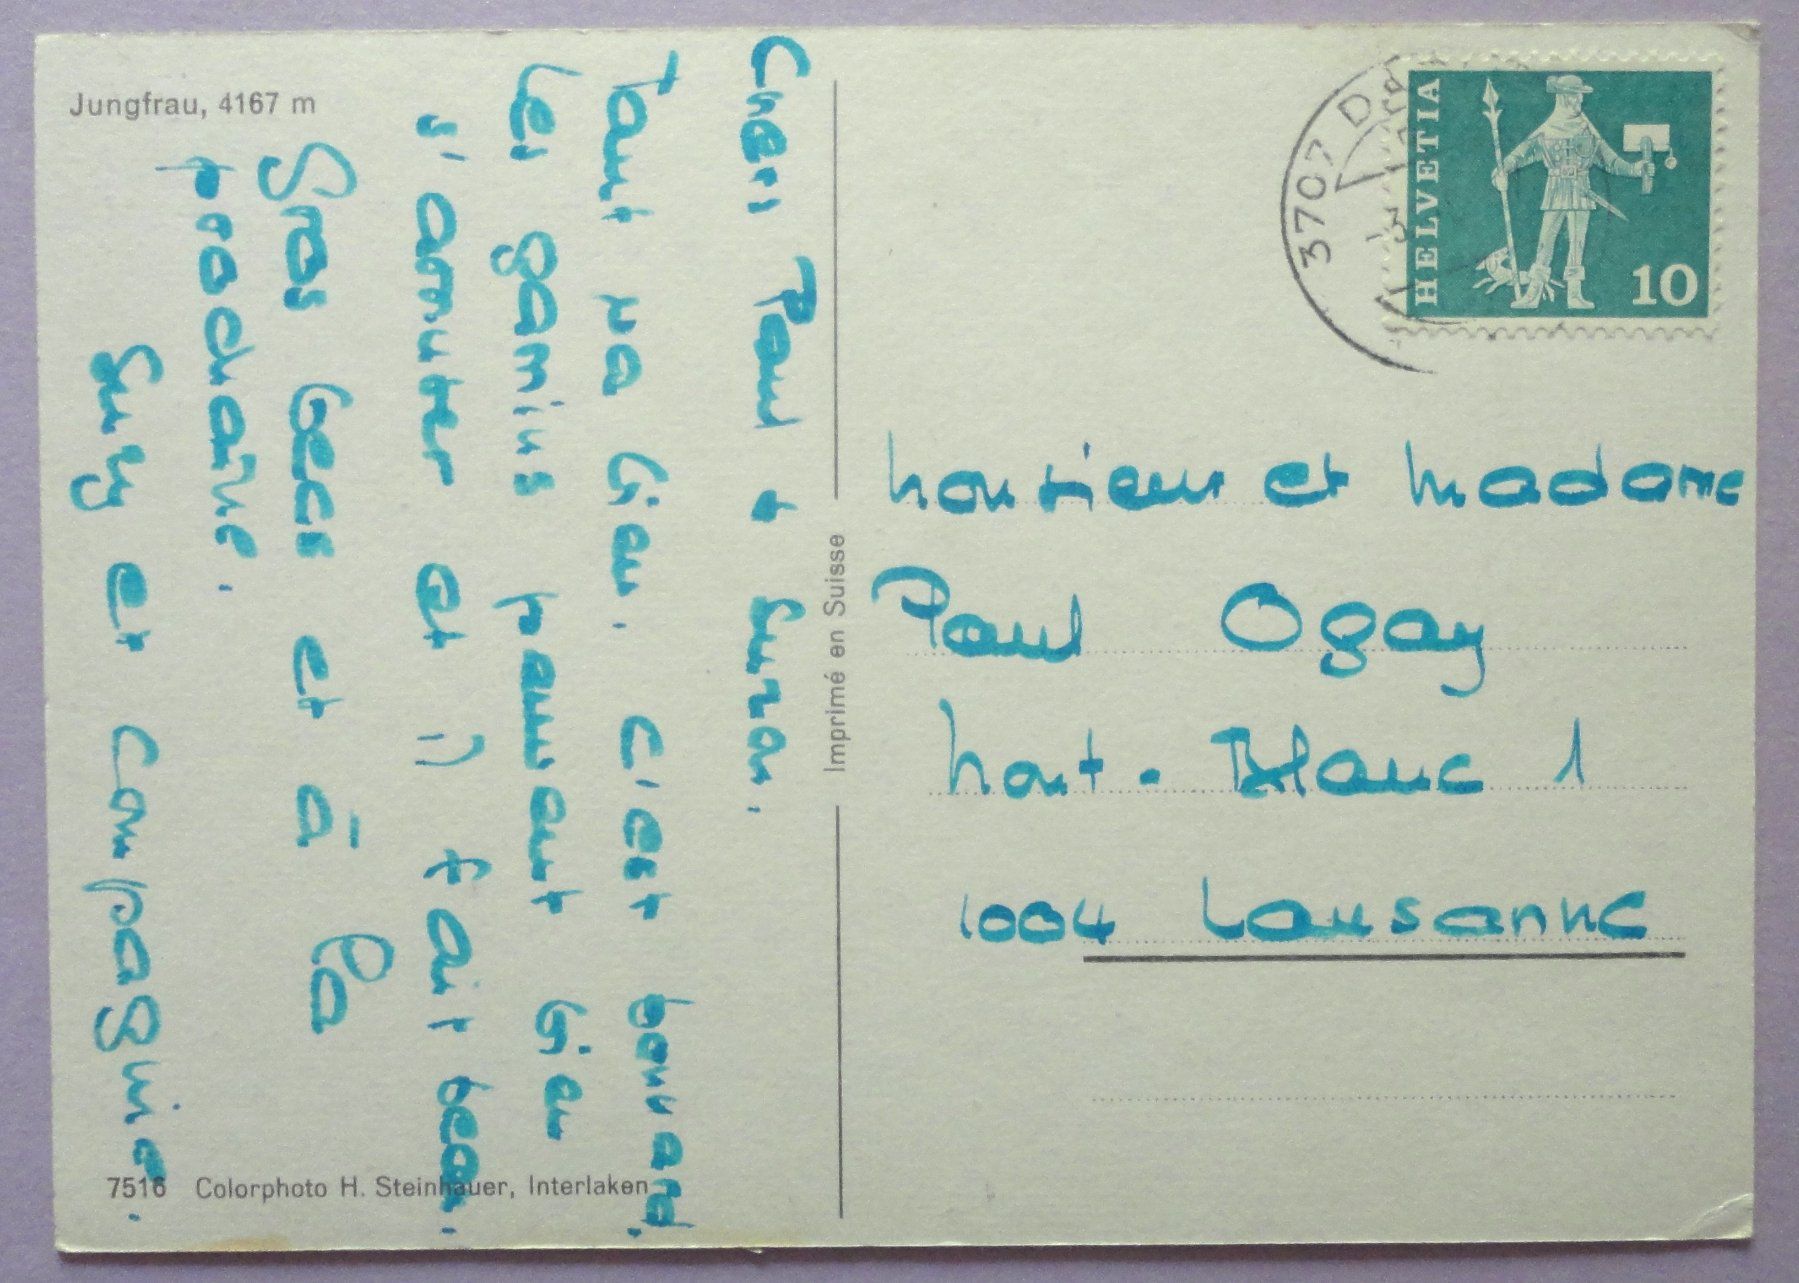 Jungfrau, 4167 m
Chers Paul & Suzon.
Tout va bien. C'est bonnard,
les gamins peuvent bien
s'amuser et il fait beau.
Gros becs et à la
prochaine.
Suzy et Compagnie.
7516 Colorphoto H. Steinhauer, Interlaken
Imprimé en Suisse
3707 D
HELVETIA
10
Monsieur et Madame
Paul Ogay
Mont-Blanc 1
1004 Lausanne